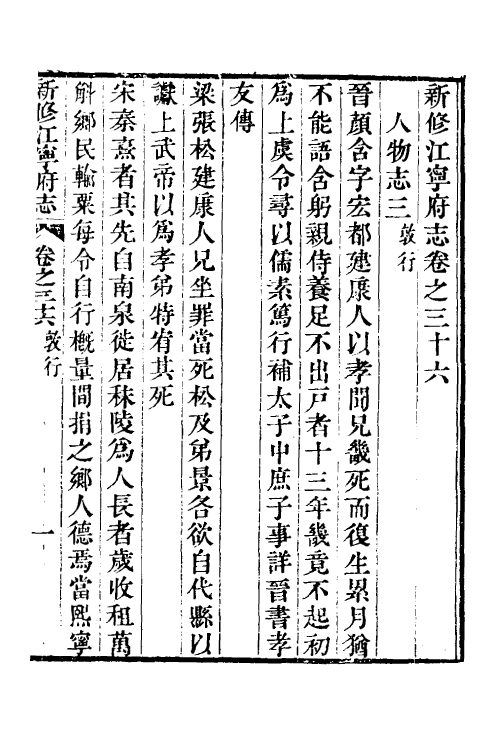 新修江寧府志卷之三十六
人物志三 敦行
晉顏含字宏都建康人以孝聞兄畿死而復生累月猶
不能語含躬親侍養足不出戸者十三年畿竟不起初
爲上虞令尋以儒素篤行補太子中庶子事詳晉書孝
友傳
梁張松建康人兄坐罪當死松及弟景各欲自代縣以
讞上武帝以爲孝弟特宥其死
宋秦熹者其先自南泉徙居秣陵爲人長者歲收租萬
斛鄉民輸粟每令自行槪量間捐之鄉人德焉當熙寧
新修江寧府志 卷之三十六 敦行 一